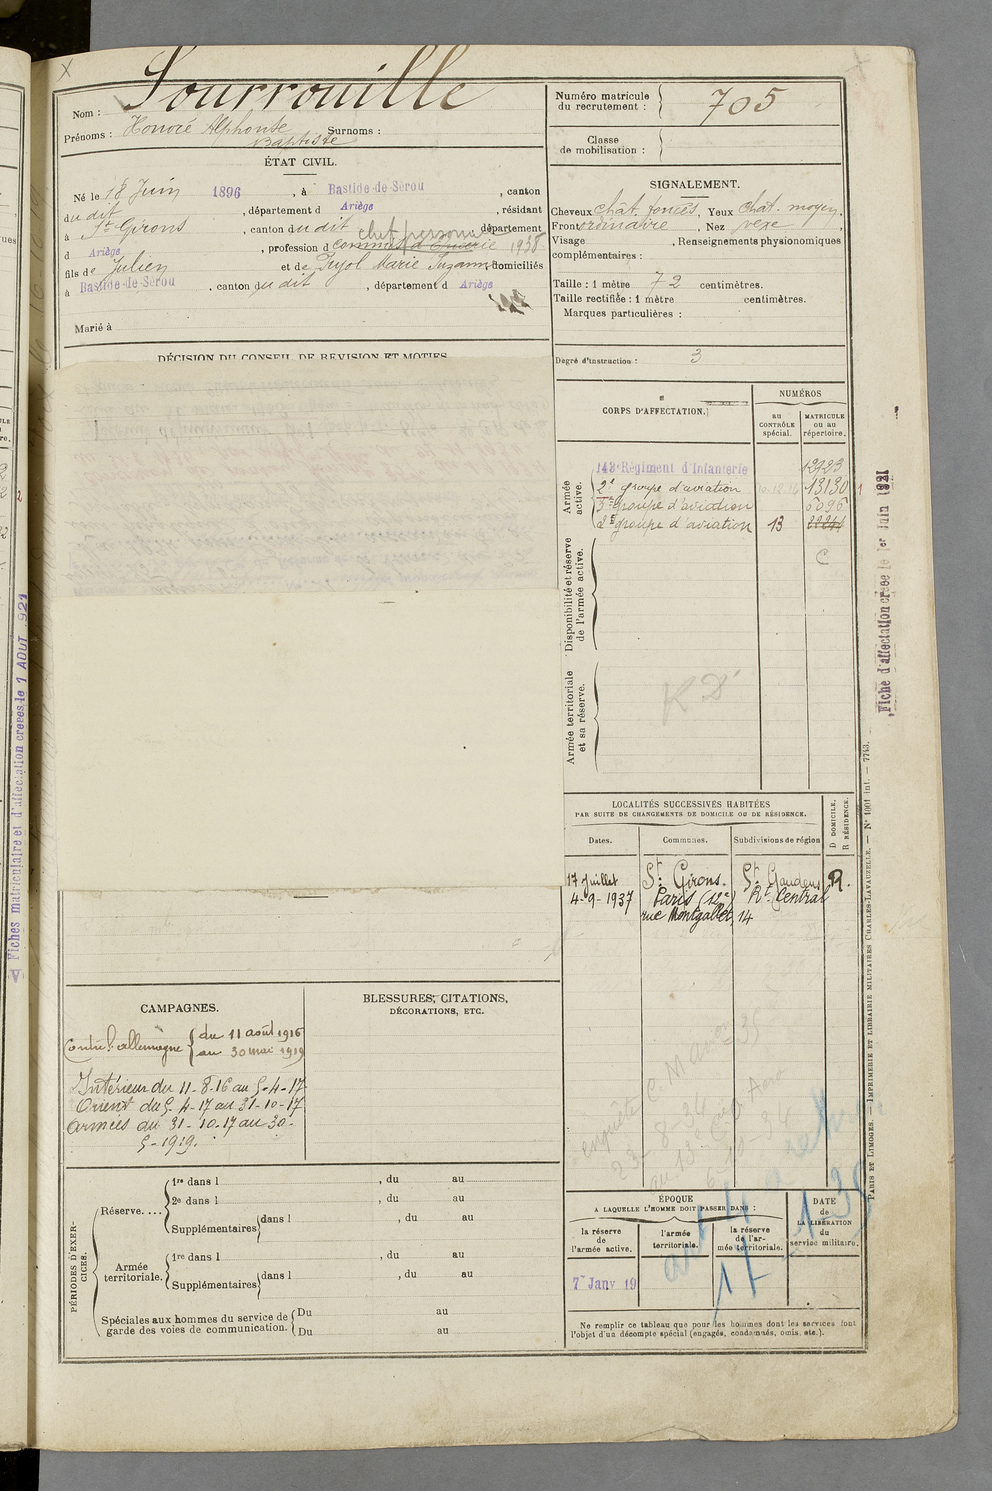 Nom : Sourrouille
Prénoms : Honoré Alphonse Surnoms :
Baptiste
ÉTAT CIVIL.
Né le 18 Juin 1896, à Bastide-de-Sérou, canton
du dit, département d Ariège, résidant
à St Girons, canton du dit département
chef personnel
d Ariège, profession d commis d'Epicerie 1938
fils de Julien et de Pujol Marie Suzanne, domiciliés
à Bastide-de-Sérou, canton du dit, département d Ariège
Marié à
DÉCISION DU CONSEIL DE REVISION ET MOTIFS
Numéro matricule
du recrutement : 705
Classe
de mobilisation :
SIGNALEMENT.
Cheveux chât. foncés, Yeux chât. moyen.
Front ordinaire, Nez vexe
Visage , Renseignements physionomiques
complémentaires :
Taille : 1 mètre 72 centimètres.
Taille rectifiée : 1 mètre centimètres.
Marques particulières :
Degré d'instruction : 3
CORPS D'AFFECTATION.
NUMÉROS
au
CONTRÔLE
spécial.
MATRICULE
ou au
répertoire.
Armée
active.
143e Régiment d'Infanterie 12923
2e groupe d'aviation 13130
3e groupe d'aviation 6096
2e groupe d'aviation 13
C
Disponibilité et réserve
de l'armée active.
Armée territoriale
et sa réserve.
LOCALITÉS SUCCESSIVES HABITÉES
PAR SUITE DE CHANGEMENTS DE DOMICILE OU DE RÉSIDENCE.
D DOMICILE.
R RÉSIDENCE.
Dates. Communes. Subdivisions de région
17 juillet St Girons. St Gaudens R.
4-9-1937 Paris (12e) Rt Central
rue Montgallet, 14
CAMPAGNES.
Contre l'allemagne du 11 août 1916
au 30 mai 1919
Intérieur du 11-8-16 au 5-4-17
Orient du 5-4-17 au 31-10-17
armées du 31-10-17 au 30-
5-1919.
BLESSURES, CITATIONS,
DÉCORATIONS, ETC.
PÉRIODES D'EXER-
CICES.
Réserve....
1re dans l , du au
2e dans l , du au
Supplémentaires dans l , du au
Armée
territoriale.
1re dans l , du au
Supplémentaires dans l , du au
Spéciales aux hommes du service de
garde des voies de communication.
Du au
Du au
ÉPOQUE
A LAQUELLE L'HOMME DOIT PASSER DANS :
la réserve
de
l'armée active.
l'armée
territoriale.
la réserve
de l'ar-
mée territoriale.
DATE
de
LA LIBÉRATION
du
service militaire.
7 Janv 19
Ne remplir ce tableau que pour les hommes dont les services font
l'objet d'un décompte spécial (engagés, condamnés, omis, etc.).
Fiche d'affectation créée le 1er Juin 1921
PARIS ET LIMOGES. — IMPRIMERIE ET LIBRAIRIE MILITAIRES CHARLES-LAVAUZELLE. — No 1001 int. — 7743.
Fiches matriculaire et d'affectation créées le 1 AOUT 921